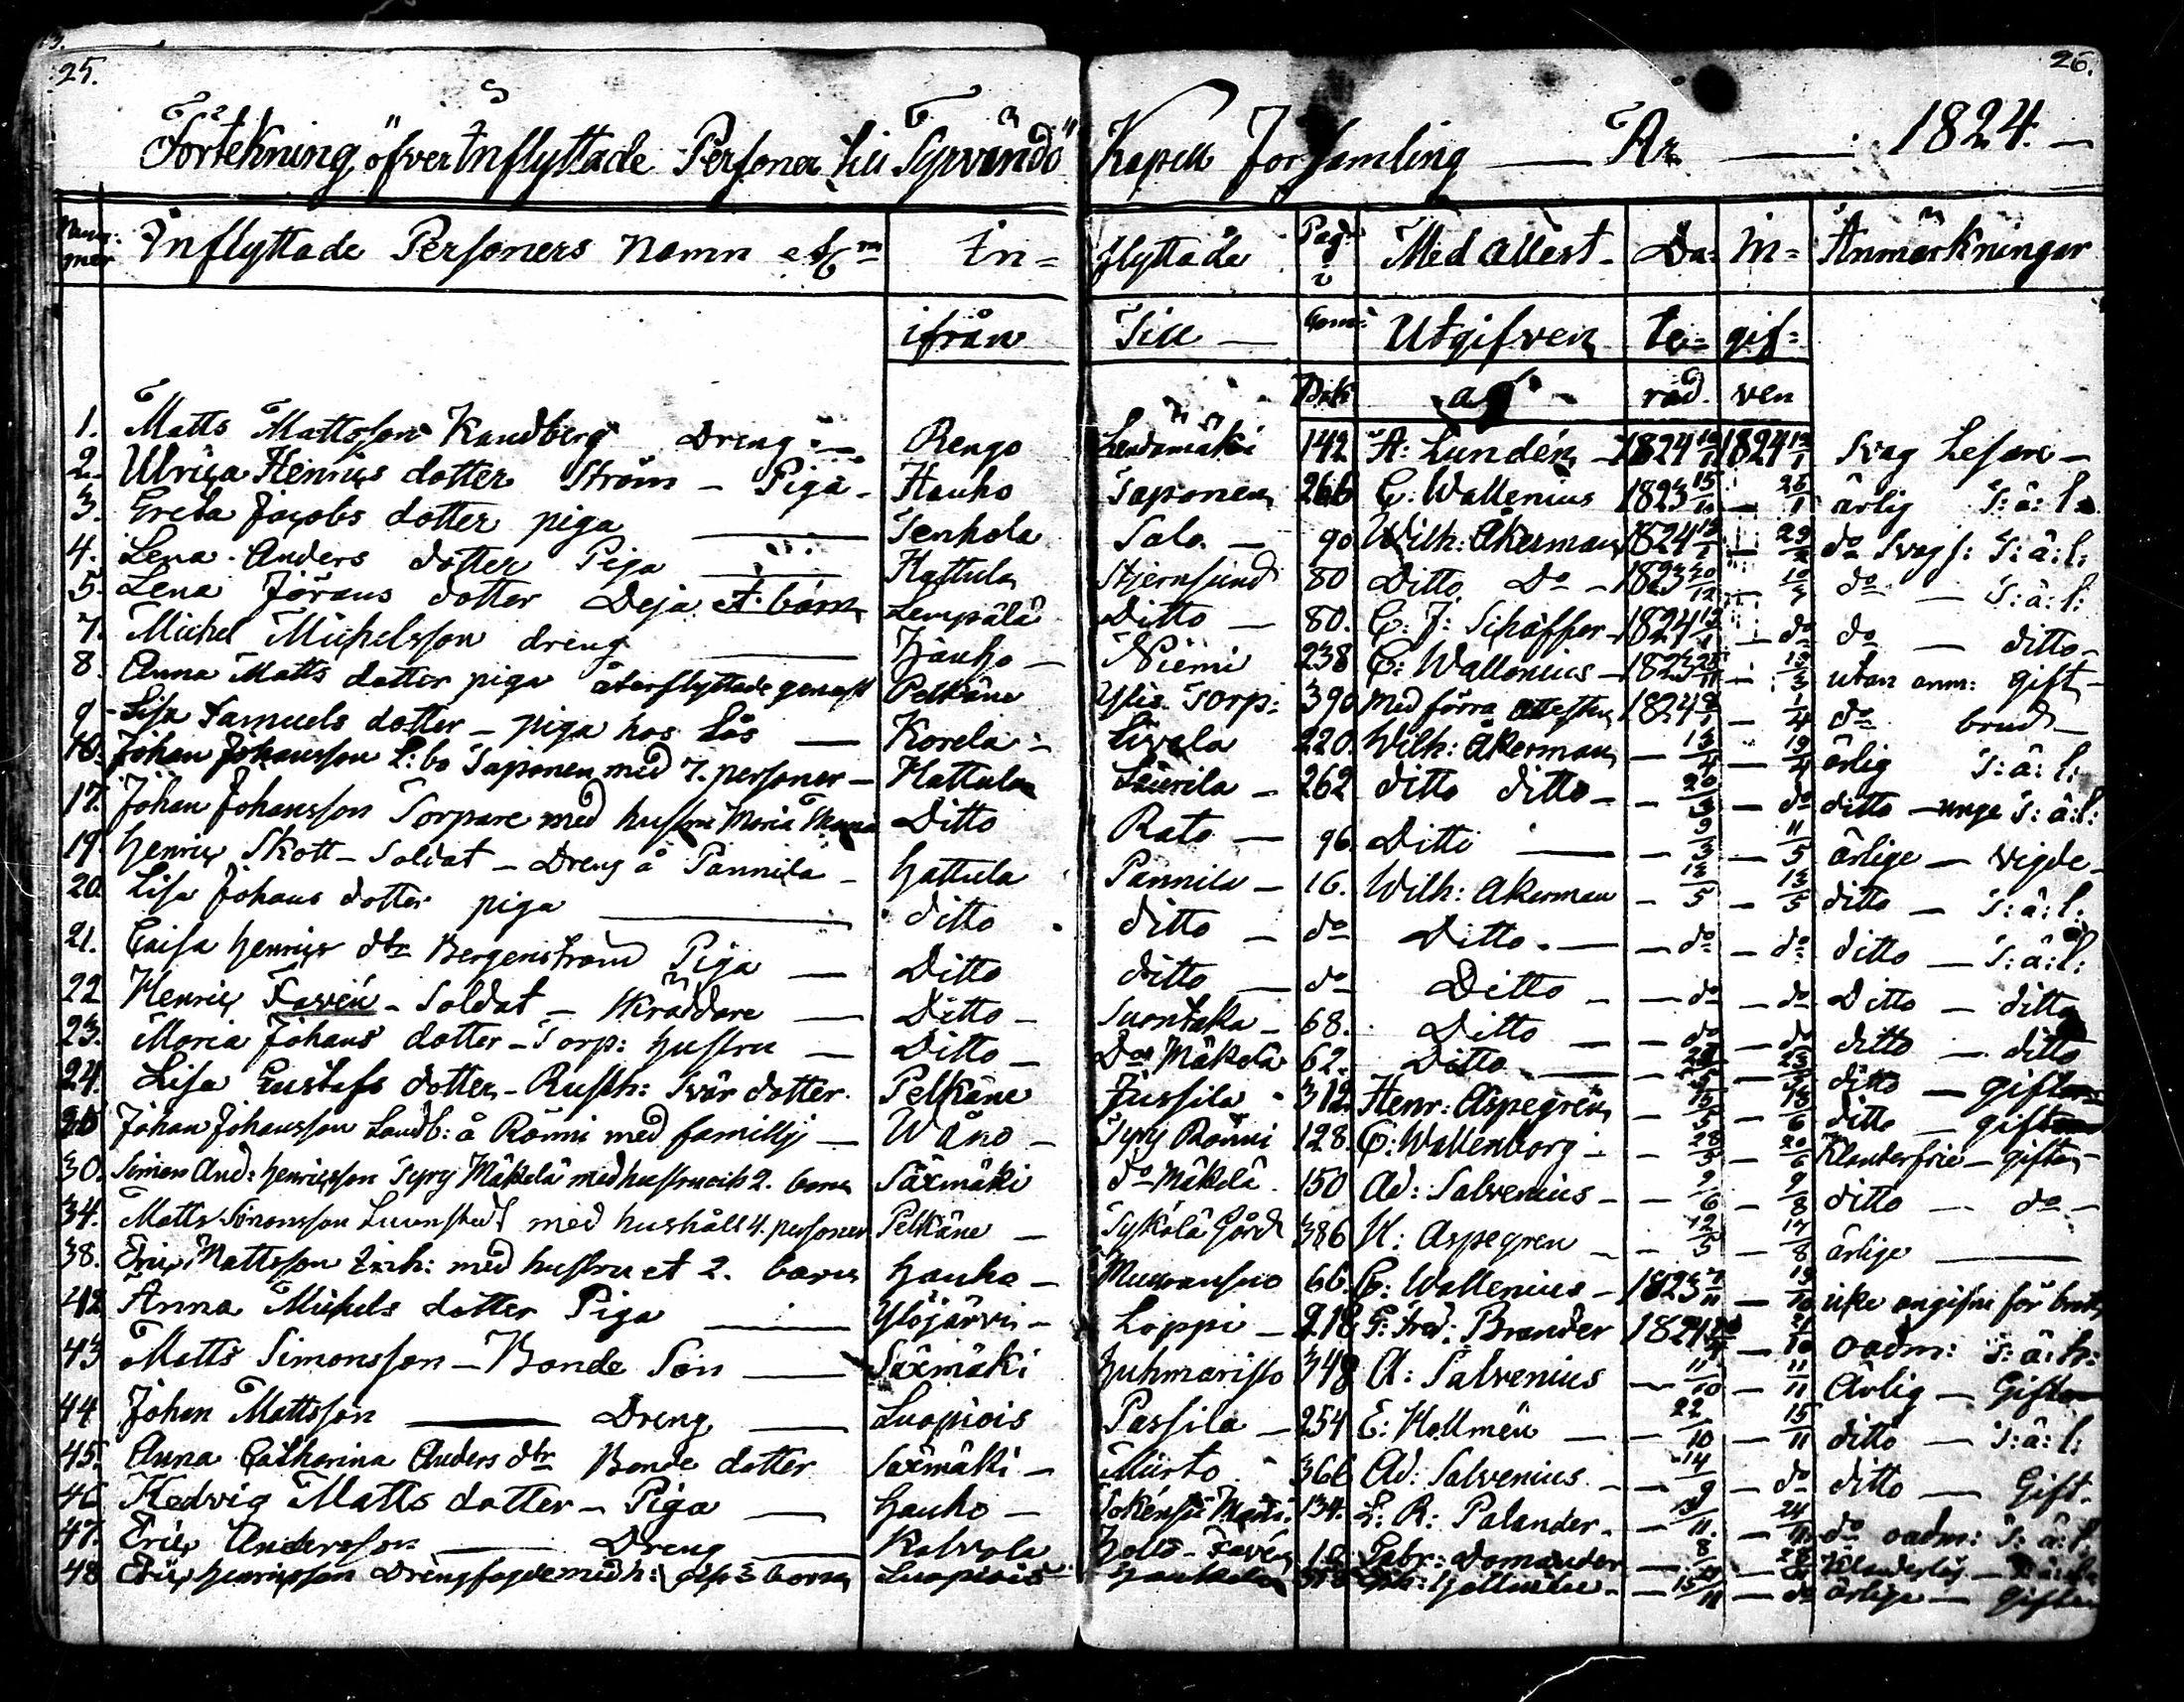 25.
26.
Förtekning öfver Inflyttade Personer till Tyrvändö Kapell Församling — År — 1824. —
Num- Inflyttade Personers Namn etc In= flyttade Pag: Med attest- Da= in= Anmärkningar
mer i
ifrån Till — Com: Utgifven te= gif=
Bok af rad. ven
1. Matts Mattsson Kandberg Dreng — Rengo 142 A: Lundén 1824 1824 Svag Lesare —
2. Ulrica Henrics dotter Ström — Piga — Hauho Saponen 266 C: Wallenius 1823 15/11 — 26/1 ärlig S: ä: l:
3. Greta Jacobs dotter piga — Tenhola Salo — 90 Wilh: Åkerman 1824 — do Svag l: S: ä: l:
4. Lena Anders dotter Piga — Hattula Stjernsund 80 Ditto Do — 1823 do — S: ä: l:
5. Lena Jörans dotter Deja et barn Lempälä Ditto — 80. C: J: Schäffer 1824 — do do — ditto —
7. Michel Michelsson dreng — Hauho — Niemi 238 C: Wallenius — 1823 utan anm: gift —
8. Anna Matts dotter piga återflyttade genast Pelkäne Ylis Torp: 390 med förra attesten 1824 do brud —
9. Lisa Samuels dotter — piga hos Lås — Korela — Livala 220. Wilh: Åkerman — 13/4 — 19/4 ärlig S: ä: l:
10. Johan Johansson L: bo Saponen med 7. personer — Hattula Laurila — 262 ditto ditto — — 20/3 — do ditto — unge S: ä: l:
17. Johan Johansson Torpare med hustru Maria Ditto Rato — 96. Ditto — — 9/3 — 11/5 ärlige — vigde —
19. Henric Skott — Soldat — Dreng å Pannila — Hattula Pannila — 16. Wilh: Akerman — 13/5 — 13/5 ditto — S: ä: l:
20. Lisa Johans dotter piga — ditto ditto — do Ditto. — — do — do ditto — S: ä: l:
21. Caisa Henrics dtr Bergenström Piga — Ditto ditto — do Ditto — — do — do Ditto — ditto
22 Henric Favén — Soldat — Skräddare — Ditto — Suontaka — 68. Ditto — — do — do ditto — ditto
23. Maria Johans dotter — Torp: hustru — Ditto — Do Mäkelä 62. Ditto — ditto — giften
24. Lisa Gustafs dotter — Rusth: Svär dotter. Pelkäne Jussila 312. Henr: Aspegrén — 15/5 — 18/6 ditto — gift
Johan Johansson Landb: å Rönni med familje — Wåno — Tyry Rönni 128. C: Wallenborg — — 28/5 — 20/6 Klanderfrie — gifte —
30. Simon And: Henricsson Tyry Mäkelä med hustru och 2. barn Säxmäki do Mäkelä. 150 Ad: Salvenius — — 9/6 — 9/8 ditto — do —
34. Matts Simonsson med hushåll 4. personer Pelkäne — Syskölä Gård 386 H: Aspegren — — 12/5 — 17/8 ärlige —
38. Eric Mattsson Inh: med hustru et 2. barn Hauho — 66. C: Wallenius — 1823 — icke angifne för brott
42. Anna Michels dotter Piga — Ylöjärvi — Loppi — 218 G: Fred: Brander 1824 — oadm: S: ä: h:
43 Matts Simonsson — Bonde Son — Säxmäki Huhmaristo 348 A: Salvenius — 11/10 — 11/11 Ärlig — Gift
44 Johan Mattsson — Dreng — Luopiois Passila — 254 E: Hollmén — — 22/10 — 15/11 ditto — S: ä: l:
45. Anna Catharina Anders dtr Bonde dotter Säxmäki — Murto 366 Ad: Salvenius — — 14/9 — do ditto — Gift.
46 Hedvig Matts dotter — Piga — Hauho — 134. L: R: Palander — — 24/11 do oadm: S: ä: l:
47. Eric Andersson — Dreng — Kalvola Gabr: Domander —
48 Eric Henricsson Drengfogde med h: och 3 barn Luopiois — 15/11 — do ärlige — giften